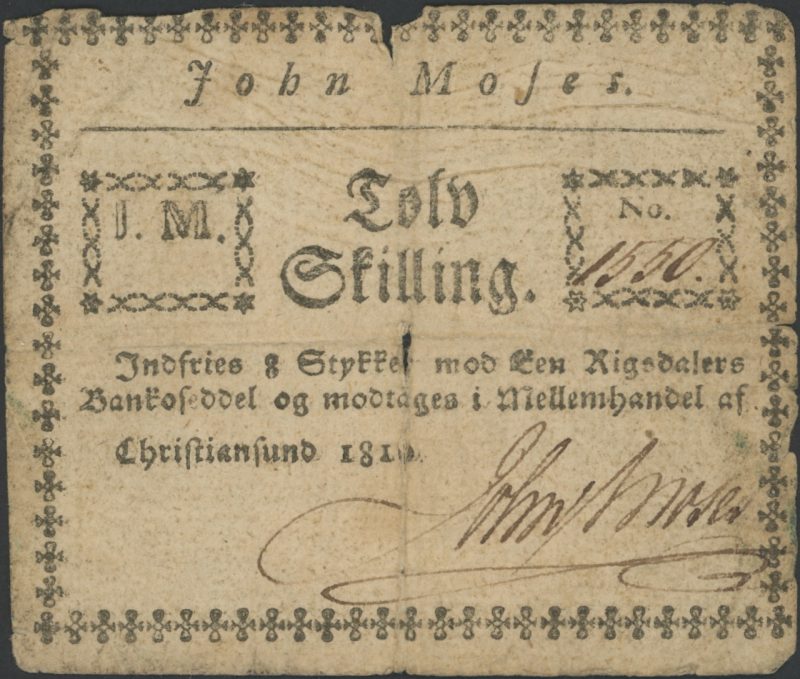 John Moſes.
J. M.
Tolv
Skilling.
No.
1550.
Indfries 8 Stykker mod Een Rigsdalers
Bankoſeddel og modtages i Mellemhandel af
Chriſtianſund 1810.
John Moses